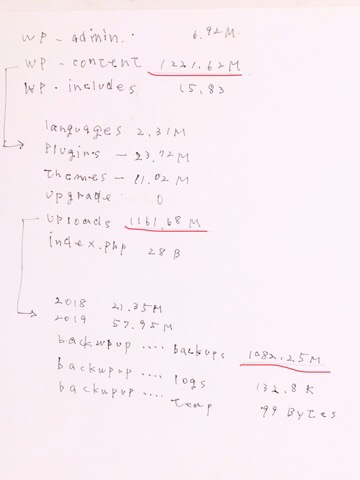 wp-admin. 6.92M
wp-content 1221.62M
wp-includes 15.83
languages 2.31M
Plugins - 23.72M
themes - 11.02M
upgrade 0
uploads 1161.68M
index.php 28B
2018 21.35M
2019 57.95M
backwpup .... backups 1082.25M
backwpup .... logs 132.8K
backwpup .... temp 99 Bytes